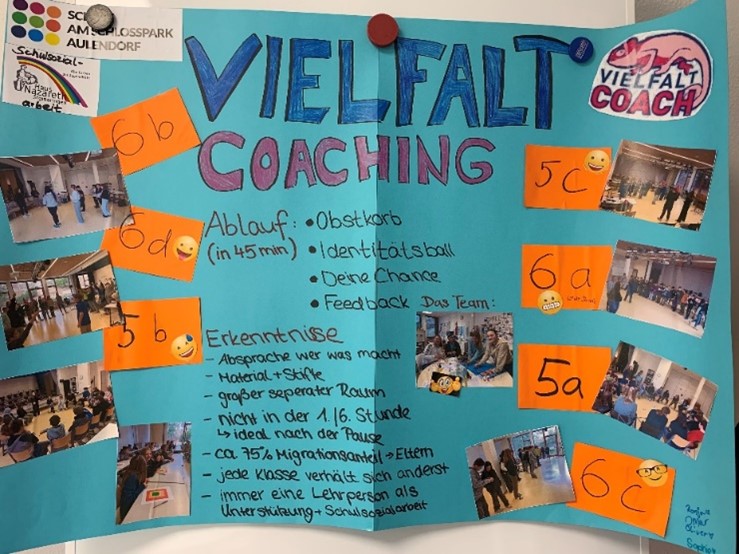 AM SCHLOSSPARK
AULENDORF
Schulsozial-
Haus
Nazareth
arbeit
VIELFALT
COACHING
VIELFALT
COACH
6b
6d
5b
5c
6a
5a
6c
Ablauf:
(in 45 min)
• Obstkorb
• Identitätsball
• Deine Chance
• Feedback
Das Team:
Erkenntnisse
- Absprache wer was macht
- Material + Stifte
- großer seperater Raum
- nicht in der 1./6. Stunde
↳ ideal nach der Pause
- ca 75% Migrationsanteil → Eltern
- jede Klasse verhält sich anderst
- immer eine Lehrperson als
Unterstützung + Schulsozialarbeit